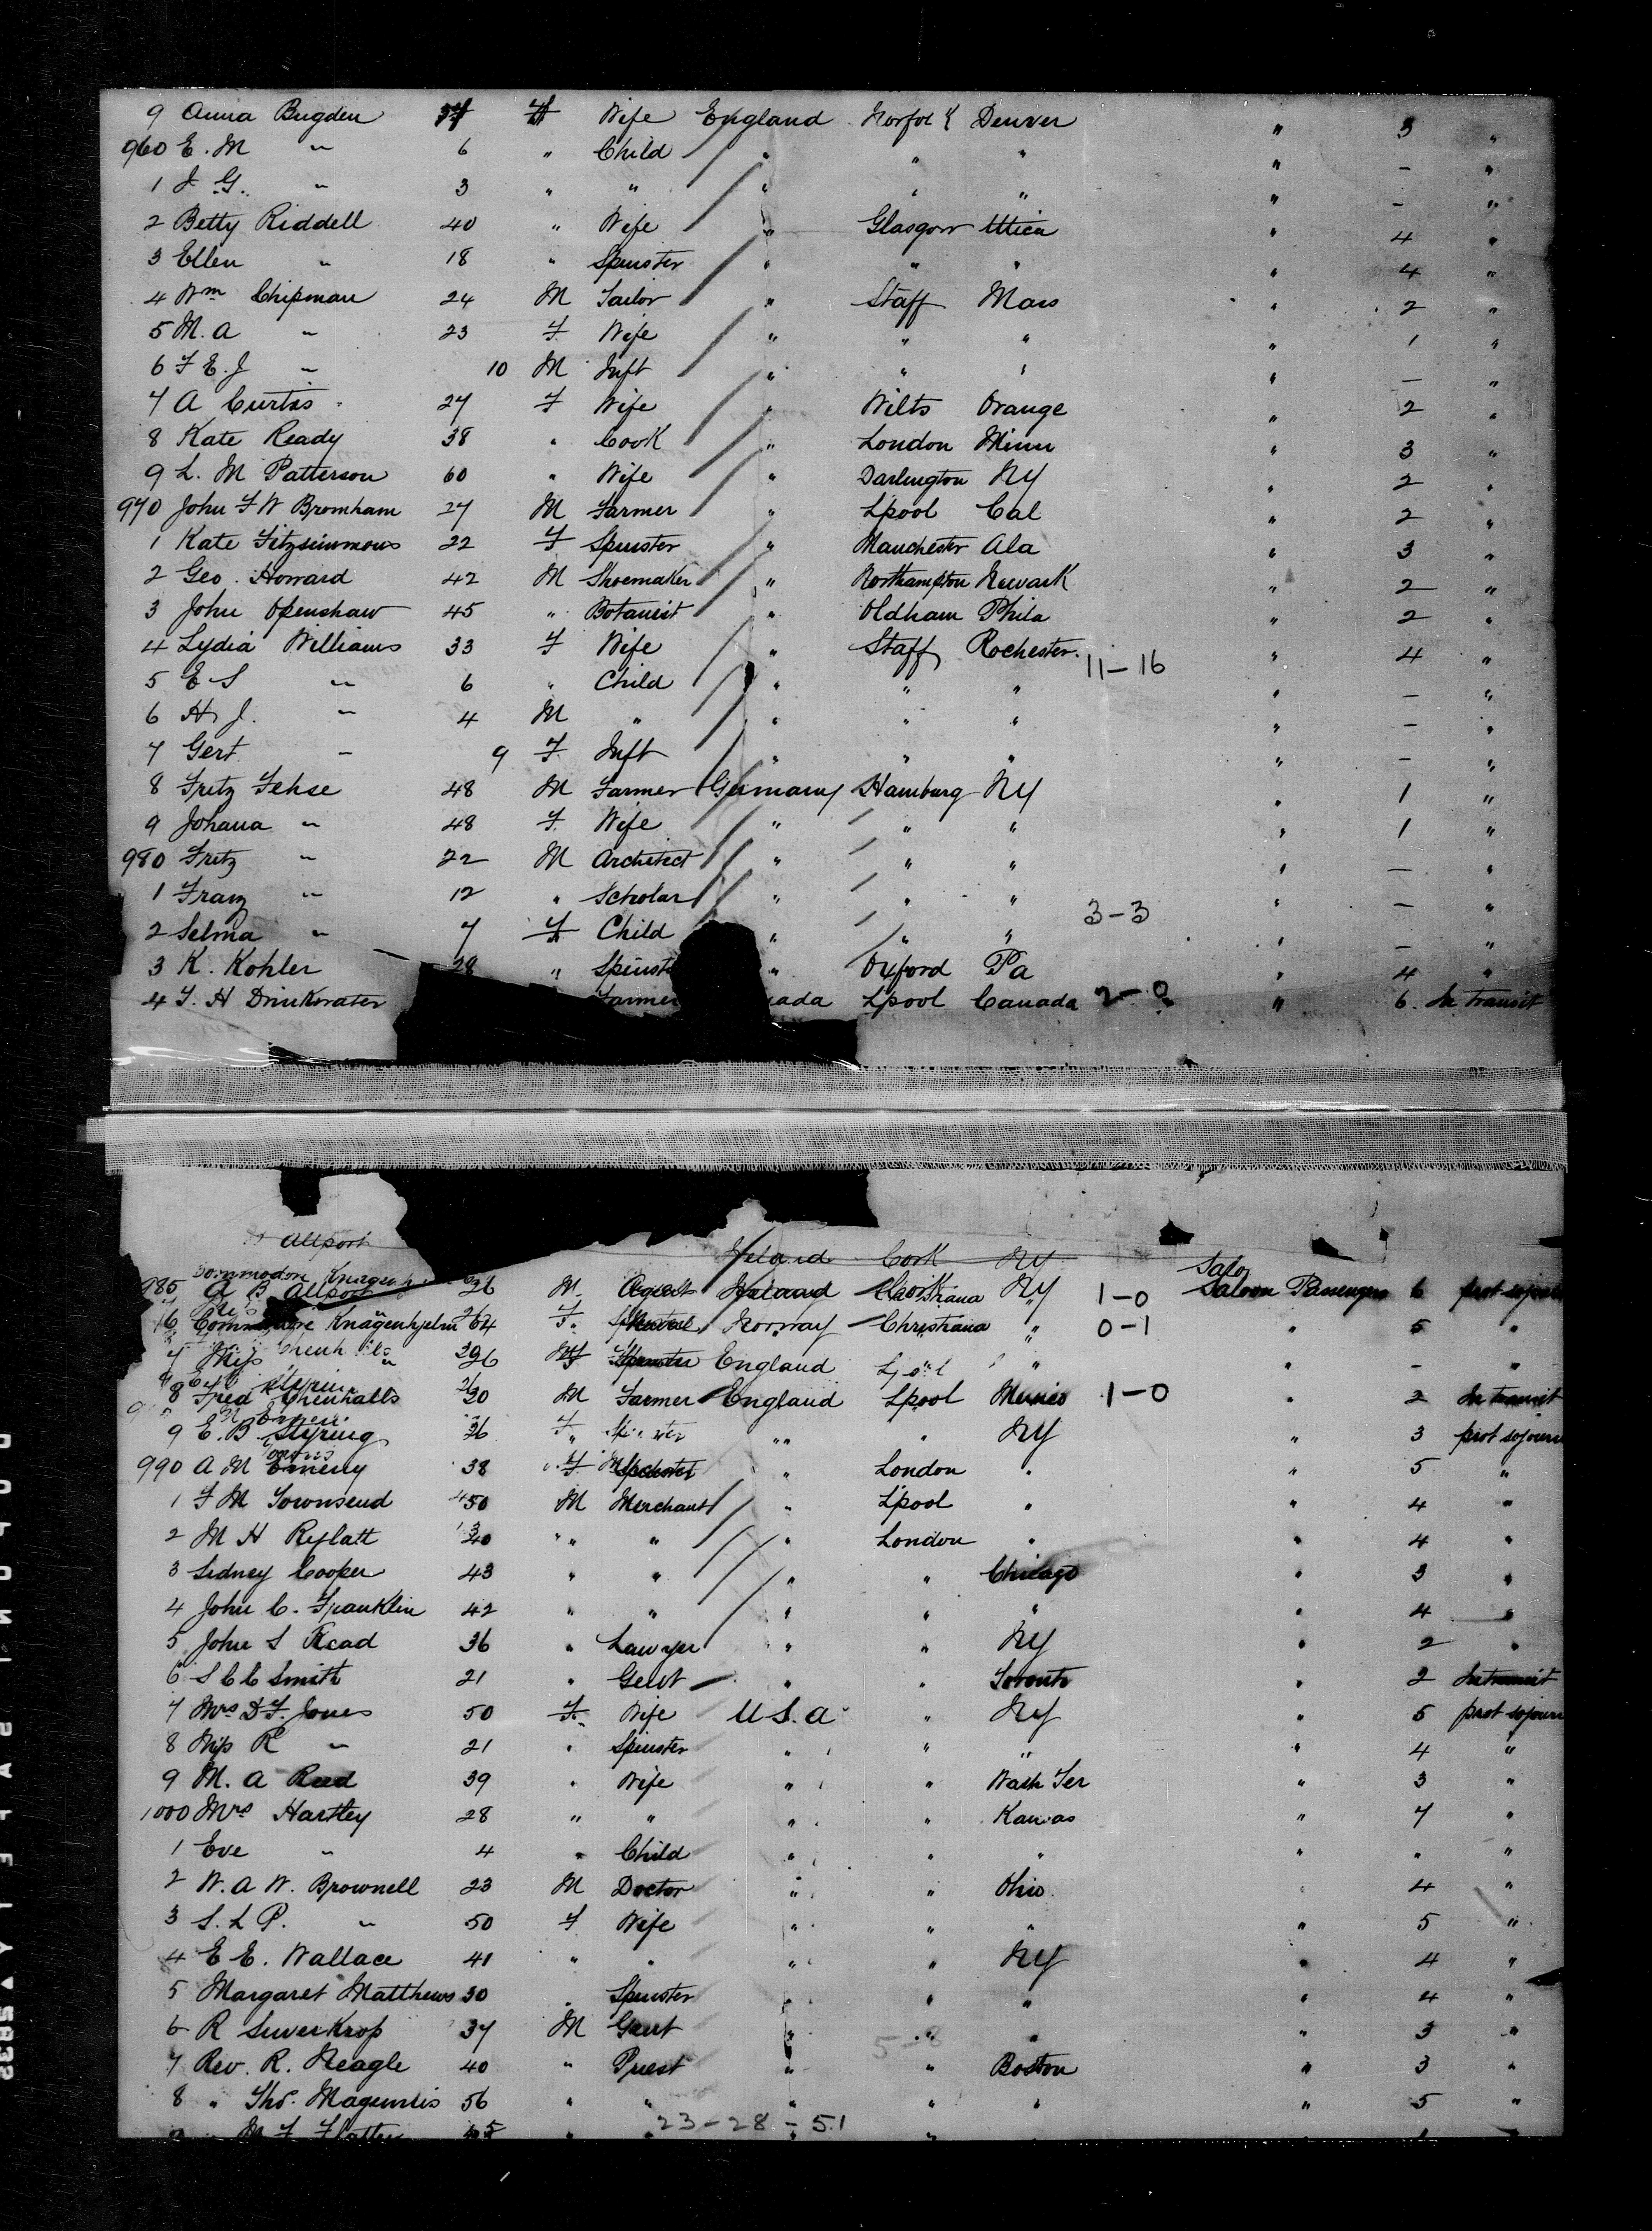 9 Anna Bugden 34 F Wife England Norfolk Denver " 3 "
960 E. M " 6 " Child " " " " - "
1 J. G. " 3 " " " " " " - "
2 Betty Riddell 40 " Wife " Glasgow Utica " 4 "
3 Ellen " 18 " Spinster " " " " 4 "
4 Wm Chipman 24 M Tailor " Staff Mass " 2 "
5 M. A " 23 F Wife " " " " 1 "
6 F E. J " 10 M Inft " " " " - "
7 A Curtis 27 F Wife " Wilts Orange " 2 "
8 Kate Ready 38 " Cook " London Minn " 3 "
9 L. M Patterson 60 " Wife " Darlington NY " 2 "
970 John F W Bromham 27 M Farmer " Lpool Cal " 2 "
1 Kate Fitzsimmons 22 F Spinster " Manchester Ala " 3 "
2 Geo. Howard 42 M Shoemaker " Northampton Newark " 2 "
3 John Openshaw 45 " Botanist " Oldham Phila " 2 "
4 Lydia Williams 33 F Wife " Staff Rochester 11-16 " 4 "
5 E S " 6 " Child " " " " - "
6 H J. " 4 M " " " " " - "
7 Gert " 9 F Inft " " " " - "
8 Fritz Fehse 48 M Farmer Germany Hamburg NY " 1 "
9 Johana " 48 F Wife " " " " 1 "
980 Fritz " 22 M Architect " " " " - "
1 Franz " 12 " Scholar " " " " - "
2 Selma " 7 F Child " " " 3-3 " - "
3 K. Kohler 28 " Spinst " Oxford Pa " 4 "
4 F. H Drinkwater Farmer ada Lpool Canada 2-0 " 6 In transit
Allport Ireland Cork NY
Commodore Knagenh Saloo
985 A B Allport 26 M Ireland Christiana NY 1-0 Saloon Passengers 6 prot sojourn
6 Commodore Knagenhjelm 64 F. Norway Christiana " 0-1 " 5 "
7 Miss " 26 Spinster England Lpool " " - "
8 Fred Chenhalls 30 M Farmer England Lpool Mexico 1-0 " 2 In transit
9 E. B. Stying 36 F Spinster " " NY " 3 prot sojourn
990 A M Emery 38 F Spinster " London " " 5 "
1 F M Townsend 50 M Merchant " Lpool " " 4 "
2 M H Reflatt 40 " " " London " " 4 "
3 Sidney Cooper 43 " " " " Chicago " 3 "
4 John C. Franklin 42 " " " " " " 4 "
5 John S Read 36 " Lawyer " " NY " 2 "
6 S C C Smith 21 " Gent " " Toronto " 2 In transit
7 Mrs D F. Jones 50 F. Wife U S. A " NY " 5 prot sojourn
8 Miss R " 21 " Spinster " " " " 4 "
9 M. A Reed 39 " Wife " " Wash Ter " 3 "
1000 Mrs Hartley 28 " " " " Kansas " 7 "
1 Eve " 4 " Child " " " " " "
2 W. A W. Brownell 23 M Doctor " " Ohio " 4 "
3 S. L P. " 50 F Wife " " " " 5 "
4 E E. Wallace 41 " " " " NY " 4 "
5 Margaret Matthews 30 " Spinster " " " " 4 "
6 R Suverkrop 37 M Gent " " " " 3 "
5-8
7 Rev. R. Neagle 40 " Priest " " Boston " 3 "
8 " Thos. Magennis 56 " " " " " " 5 "
" M F Flatley 45 " " 23-28-51